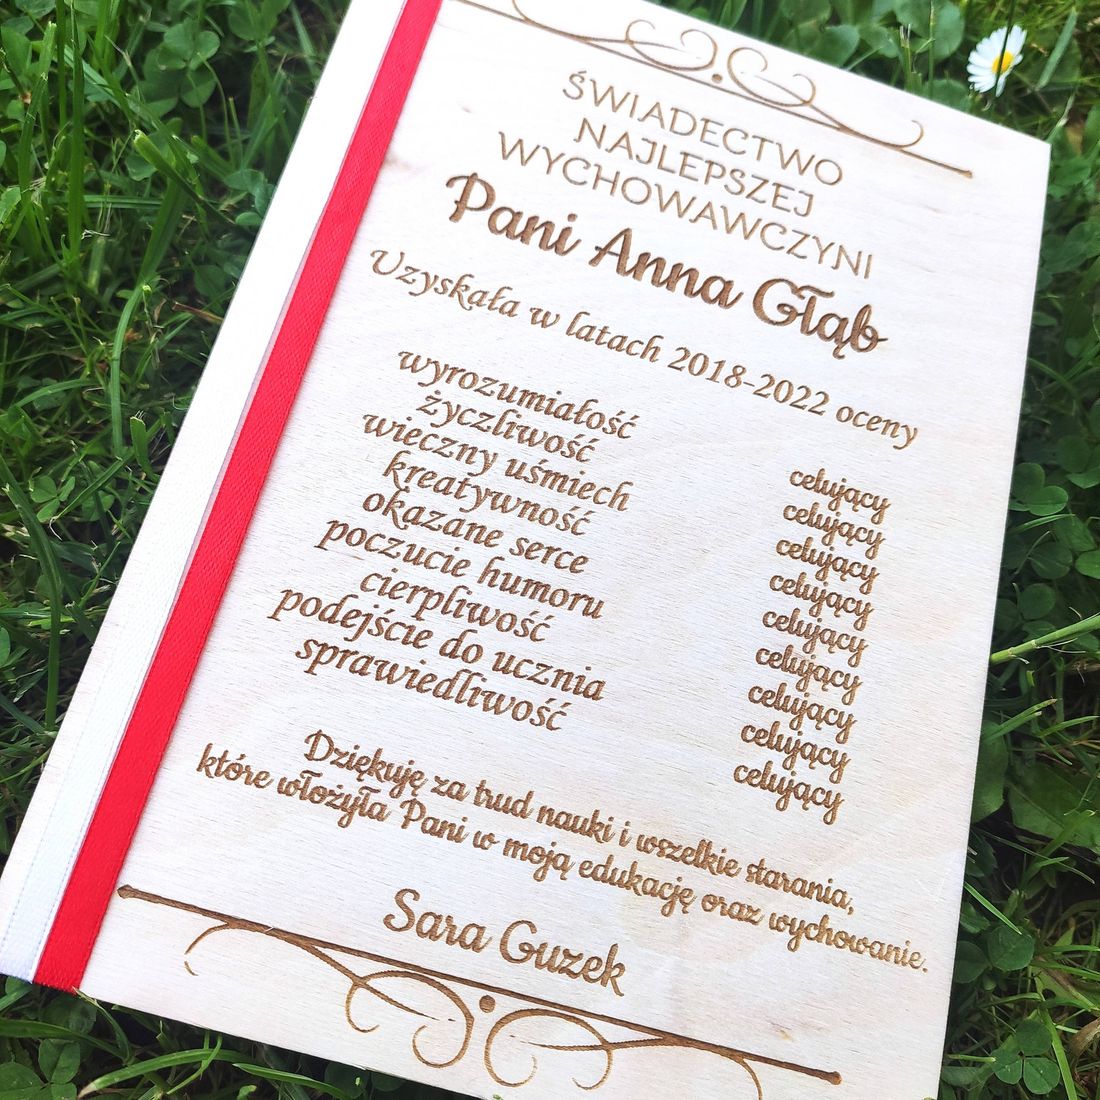 ŚWIADECTWO
NAJLEPSZEJ
WYCHOWAWCZYNI
Pani Anna Głąb
Uzyskała w latach 2018-2022 oceny
wyrozumiałość celujący
życzliwość celujący
wieczny uśmiech celujący
kreatywność celujący
okazane serce celujący
poczucie humoru celujący
cierpliwość celujący
podejście do ucznia celujący
sprawiedliwość celujący
Dziękuję za trud nauki i wszelkie starania,
które włożyła Pani w moją edukację oraz wychowanie.
Sara Guzek